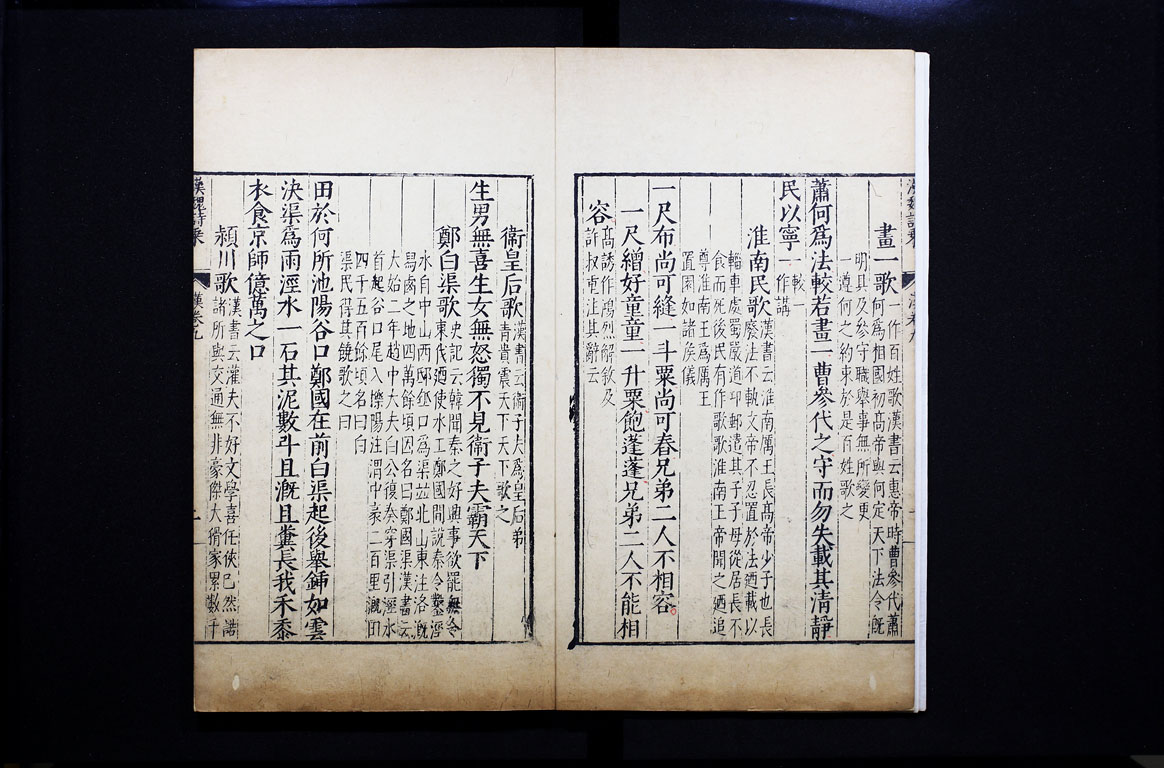 漢魏詩乘
漢卷九
畫一歌一作百姓歌漢書云惠帝時曹參代蕭
何爲相國初高帝與何定天下法令旣
明具及參守職舉事無所變更
一遵何之約束於是百姓歌之
蕭何爲法較若畫一曹參代之守而勿失載其清靜
民以寧一較一
作講
淮南民歌漢書云淮南厲王長高帝少子也長
廢法不軌文帝不忍置於法廼載以
輜車處蜀嚴道邛郵遣其子子母從居長不
食而死後民有作歌歌淮南王帝聞之廼追
尊淮南王爲厲王
置園如諸侯儀
一尺布尚可縫一斗粟尚可舂兄弟二人不相容
一尺繒好童童一升粟飽蓬蓬兄弟二人不能相
容高誘作鴻烈解敘及
許叔重注其辭云
衞皇后歌漢書云衞子夫爲皇后弟
青貴震天下天下歌之
生男無喜生女無怒獨不見衞子夫霸天下
鄭白渠歌史記云韓聞秦之好興事欲罷無令
東伐廼使水工鄭國間說秦令鑿涇
水自中山西邸瓠口爲渠並北山東注洛溉
舄鹵之地四萬餘頃因名曰鄭國渠漢書云
大始二年趙中大夫白公復奏穿渠引涇水
首起谷口尾入櫟陽注渭中袤二百里溉田
四千五百餘頃名曰白
渠民得其饒歌之曰
田於何所池陽谷口鄭國在前白渠起後舉鍤如雲
決渠爲雨涇水一石其泥數斗且溉且糞長我禾黍
衣食京師億萬之口
潁川歌漢書云灌夫不好文學喜任俠已然諾
諸所與交通無非豪傑大猾家累數千
漢魏詩乘
漢卷九
二